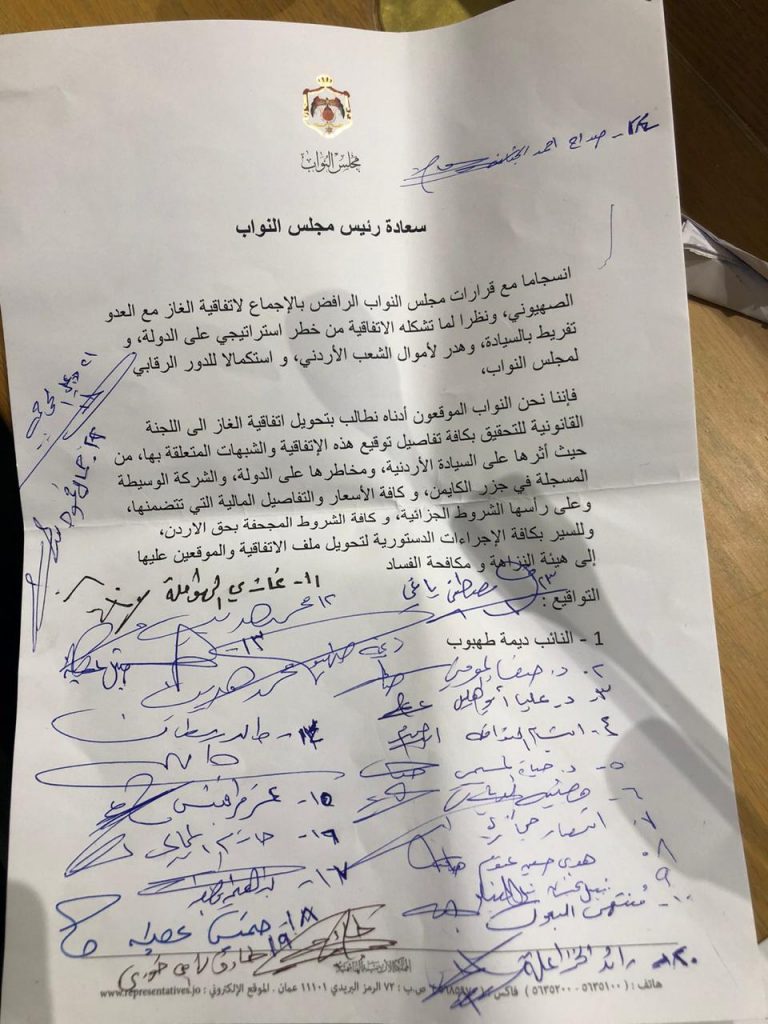 مجلس النواب
٢٤- صداح احمد
سعادة رئيس مجلس النواب
انسجاما مع قرارات مجلس النواب الرافض بالإجماع لاتفاقية الغاز مع العدو
الصهيوني، ونظرا لما تشكله الاتفاقية من خطر استراتيجي على الدولة، و
تفريط بالسيادة، وهدر لأموال الشعب الأردني، و استكمالا للدور الرقابي
لمجلس النواب،
فإننا نحن النواب الموقعون أدناه نطالب بتحويل اتفاقية الغاز الى اللجنة
القانونية للتحقيق بكافة تفاصيل توقيع هذه الإتفاقية والشبهات المتعلقة بها، من
حيث أثرها على السيادة الأردنية، ومخاطرها على الدولة، والشركة الوسيطة
المسجلة في جزر الكايمن، و كافة الأسعار والتفاصيل المالية التي تتضمنها،
وعلى رأسها الشروط الجزائية، و كافة الشروط المجحفة بحق الاردن،
وللسير بكافة الإجراءات الدستورية لتحويل ملف الاتفاقية والموقعين عليها
إلى هيئة النزاهة و مكافحة الفساد
التواقيع :
٢٣ مصطفى ياغي
1 - النائب ديمة طهبوب
٢- د. صفاء المومني
٣- د. عليا أبو هليل
٤- ابتسام النوافله
٥- د. حياة المسيمي
٦-
٧- انتصار حجازي
٨- هدى حسين عتوم
٩- نبيل
١٠- منتهى البعول
١١- غازي الهواملة
١٢
١٣-
١٤- خالد رمضان
١٥-
١٦- حازم المجالي
١٧-
١٨- خميس عطيه
١٩ طارق سامي خوري
٢٠- رائد الخزاعلة
٢١
٢٢
هاتف : (٥٦٣٥١٠٠ - ٥٦٣٥٢٠٠) فاكس ص.ب : ٧٢ الرمز البريدي ١١١٠١ عمان . الموقع الإلكتروني : www.representatives.jo